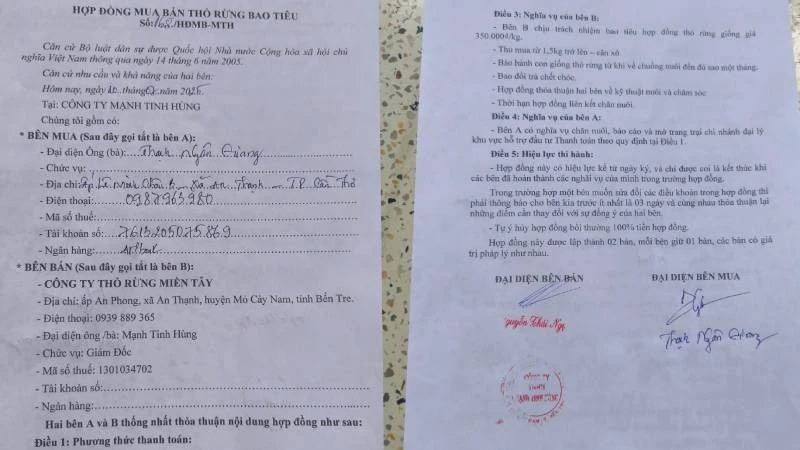 HỢP ĐỒNG MUA BÁN THỎ RỪNG BAO TIÊU
Số: /HĐMB-MTH
Căn cứ Bộ luật dân sự được Quốc hội Nhà nước Cộng hòa xã hội chủ
nghĩa Việt Nam thông qua ngày 14 tháng 6 năm 2005.
Căn cứ nhu cầu và khả năng của hai bên:
Hôm nay, ngày tháng năm
Tại: CÔNG TY MẠNH TINH HÙNG
Chúng tôi gồm có:
* BÊN MUA (Sau đây gọi tắt là bên A):
- Đại diện Ông (bà): Thạch Ngân Giang
- Chức vụ:
- Địa chỉ: ấp xã An Thạnh TP. Cần Thơ
- Điện thoại: 0987963980
- Mã số thuế:
- Tài khoản số: 7613205075869
- Ngân hàng:
* BÊN BÁN (Sau đây gọi tắt là bên B):
- CÔNG TY THỎ RỪNG MIỀN TÂY
- Địa chỉ: ấp An Phong, xã An Thạnh, huyện Mỏ Cày Nam, tỉnh Bến Tre.
- Điện thoại: 0939 889 365
- Đại diện ông /bà: Mạnh Tinh Hùng
- Chức vụ: Giám Đốc
- Mã số thuế: 1301034702
- Tài khoản số:
- Ngân hàng:
Hai bên A và B thống nhất thỏa thuận nội dung hợp đồng như sau:
Điều 1: Phương thức thanh toán:
Điều 3: Nghĩa vụ của bên B:
- Bên B chịu trách nhiệm bao tiêu hợp đồng thỏ rừng giống giá
350.000đ/kg.
- Thu mua từ 1,5kg trở lên – cân xô
- Bảo hành con giống thỏ rừng từ khi về chuồng nuôi đến đủ sau một tháng.
- Bao đổi trả chết chóc.
- Hợp đồng thỏa thuận hai bên về kỹ thuật nuôi và chăm sóc
- Thời hạn hợp đồng liên kết chăn nuôi.
Điều 4: Nghĩa vụ của bên A:
- Bên A có nghĩa vụ chăn nuôi, báo cáo và mở trang trại chi nhánh đại lý
khu vực hỗ trợ đầu tư Thanh toán theo quy định tại Điều 1.
Điều 5: Hiệu lực thi hành:
- Hợp đồng này có hiệu lực kể từ ngày ký, và chỉ được coi là kết thúc khi
các bên đã hoàn thành các nghĩa vụ của mình trong trường hợp đồng.
Trong trường hợp một bên muốn sửa đổi các điều khoản trong hợp đồng thì
phải thông báo cho bên kia trước ít nhất là 03 ngày và cùng nhau thỏa thuận lại
những điểm cần thay đổi với sự đồng ý của hai bên.
- Tự ý hủy hợp đồng bồi thường 100% tiền hợp đồng.
Hợp đồng này được lập thành 02 bản, mỗi bên giữ 01 bản, các bản có giá
trị pháp lý như nhau.
ĐẠI DIỆN BÊN BÁN
ĐẠI DIỆN BÊN MUA
Thạch Ngân Giang